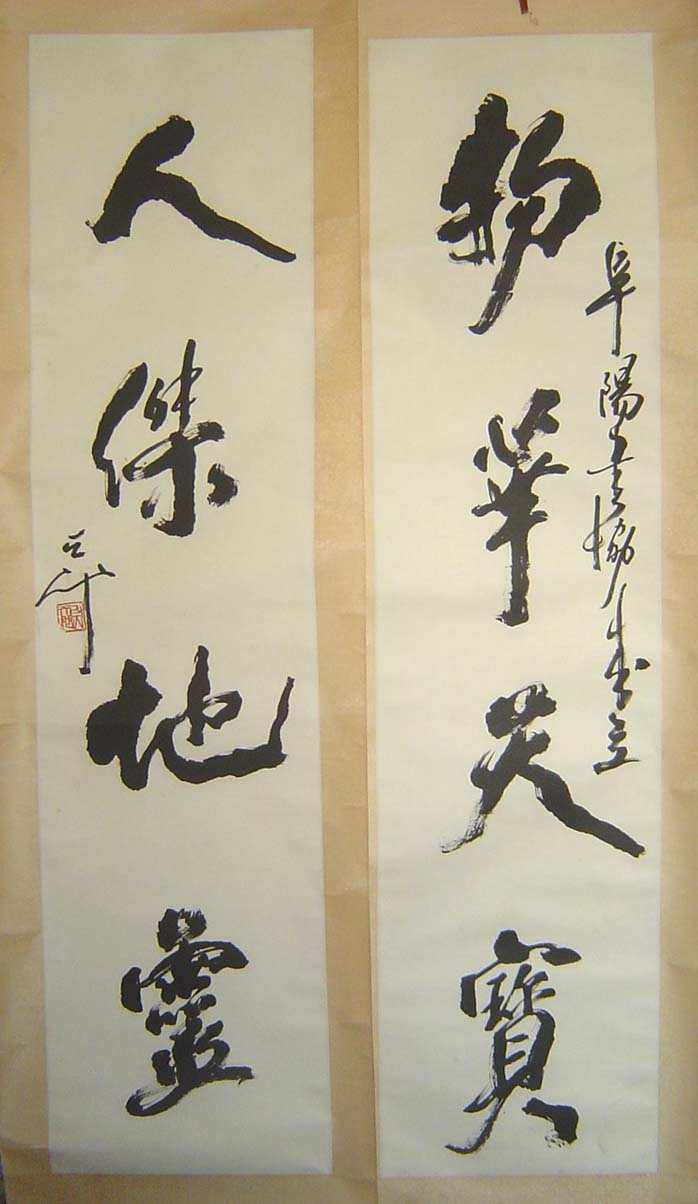 物華天寶
阜陽書協成立
人傑地靈